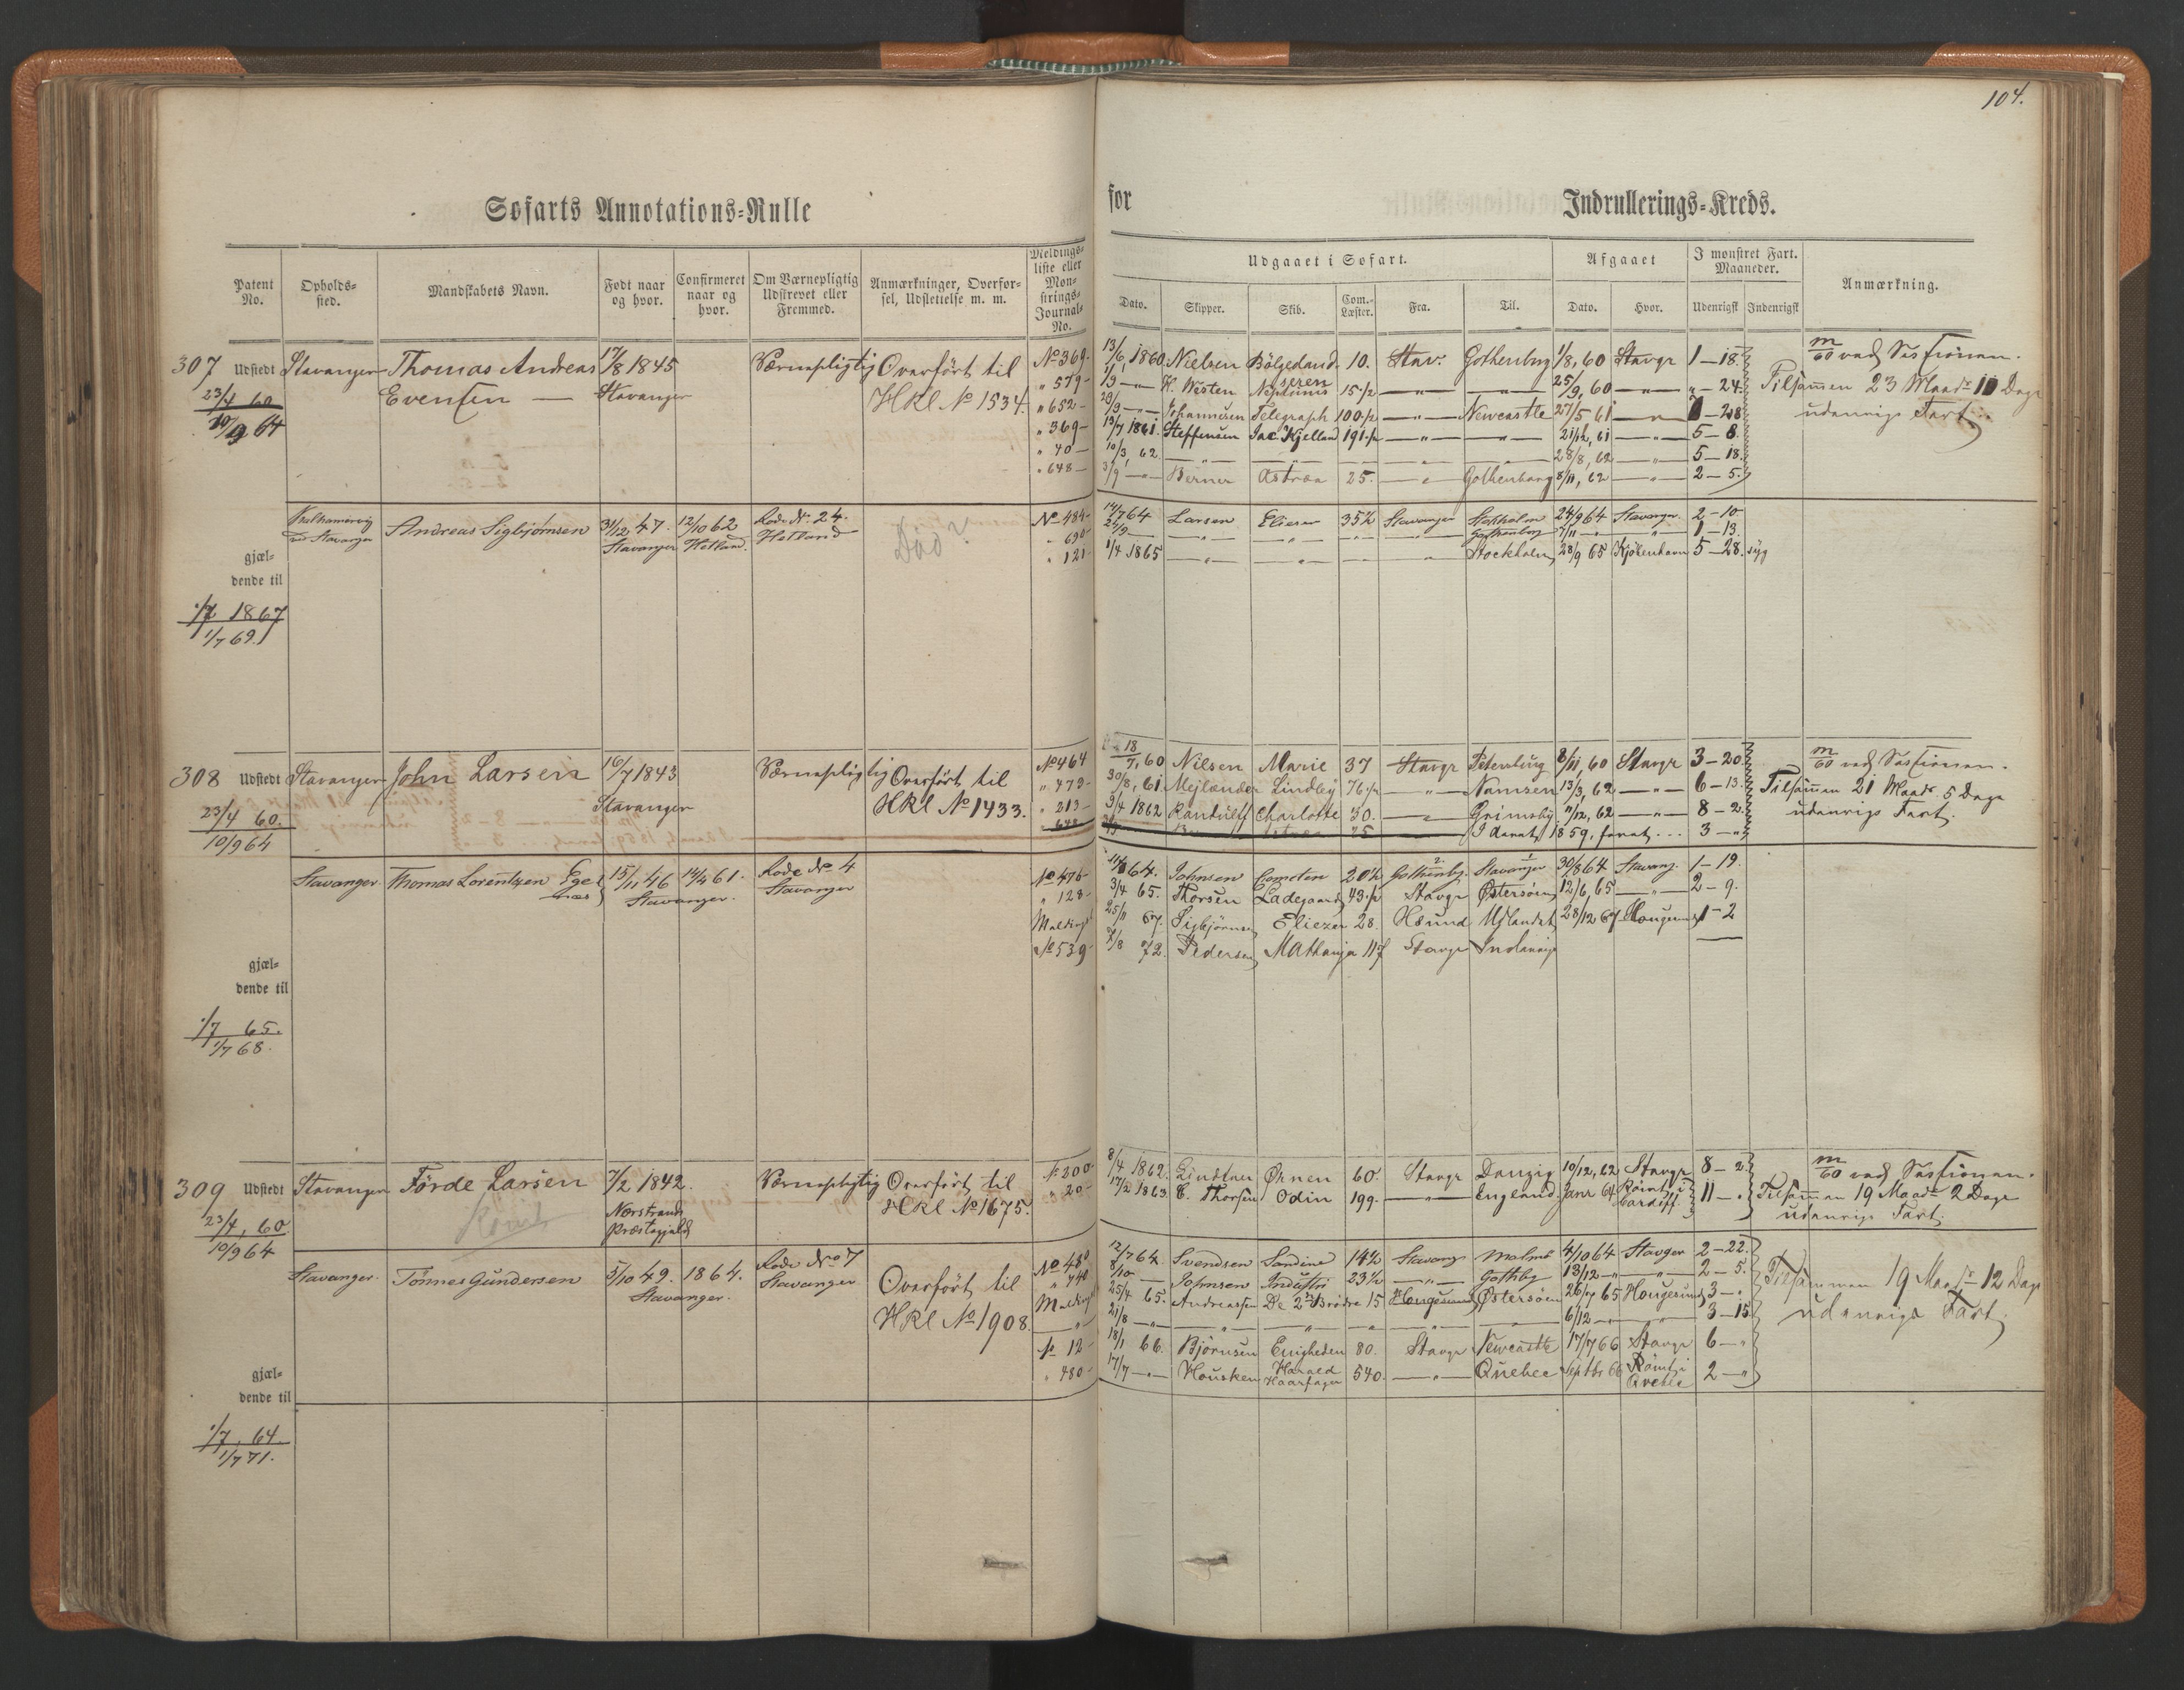 104.
Søfarts Annotations=Rulle
for Indrullerings=Kreds.
Patent No. Opholds= sted. Mandskabets Navn. Født naar og hvor. Confirmeret naar og hvor. Om Værnepligtig Udstrevet eller Fremmed. Anmærkninger, Overfør= sel, Udslettelse m. m. Meldings= liste eller Mon= strings= Journal= No.
Udgaaet i Søfart. Afgaaet I monstret Fart. Maaneder. Anmærkning.
Dato. Skipper. Skib. Com.= Læster. Fra. Til. Dato. Hvor. Udenrigsk Indenrigsk
307 Udstedt Stavanger Thomas Andreas 17/8 1845 Værnepligtig Overført til No 369
23/4 60 Eventsen — Stavanger HKl No 1534. " 579
10/9 64 " 652
" 369
" 40
" 648
13/6 1860 Nielsen Bölgedand 10. Stav. Gothenburg 1/8, 60 Stavgr 1–18 m/60 ved Sessionen.
H. Westen Neptunus 15 1/2 — " — — " — 25/9, 60 — " — " – 24 Tilsammen 23 Maadr 10 Dage
29/9 — Johannesen Telegraph 100 1/2 — " — Newcastle 27/5 61 — " — –28 udenrigs Fart.
13/7 1861. Steffensen Jac Kjelland 191 1/2 — " — — " — 21/12, 61 — " — 5–8.
10/3, 62 — " — — " — 28/8, 62 — " — 5–18.
3/9 — Berner Astræa 25. — " — Gothenborg 8/11, 62 — " — 2–5.
ved Stavanger Andreas Sigbjørnsen 31/12 47. Stavanger 12/10 62 Hetland. Rode No. 24. Hetland Død? No 484
" 690
" 121
14/7 64 Larsen Elieser 35 1/2 Stavanger Stokholm 24/9 64 Stavangr. 2–10
24/9 — " — — " — Gothenborg 7/11 — " — 1–13.
1/4 1865 — " — — " — Stockholm 28/9 65 Kjöbenhavn 5–28. syg
gjæl=
dende til
1/7 1867
1/7 69.
308 Udstedt Stavanger John Larsen 16/7 1843 Værnepligtig Overført til No 464
23/4 60. Stavanger HKl No 1433. " 479
10/9 64 " 213
" 648
18/7, 60 Nilsen Marie 37 Stavgr Petersburg 8/11, 60 Stavgr 3–20 m/60 ved Sessionen.
30/8, 61. Mejlænder Lindley 76 1/2 — " — Namsen 13/3, 62 — " — 6–13. Tilsammen 21 Maadr 5 Dage
3/4 1862 Randulff Charlotte 30. — " — Grimsby 7/12, 62 — " — 8–2. udenrigs Fart.
1859, 3–"
Stavanger. Thomas Lorentzen Ege= næs 15/11 46 Stavanger. 14/4 61. Rode No 4 Stavanger No 476
" 128
Meldings
No 539
64. Johnsen Cometen 20 1/2 Gothenbg. Stavanger 30/8 64 Stavang. 1–19.
3/4 65. Thorsen Ladegaard 43 1/2 Stavgr Østersöen 12/6, 65 — " — 2–9.
25/11 67. Sigbjörnsen Eliezer 28. Hsund Udlandet 28/12 67 Hougesund 1–2
7/8 72. Pedersen Mathanja 117 Stavgr Indenrigs
gjæl=
dende til
1/7 65.
1/7 68.
309 Udstedt Stavanger Förde Larsen 7/2 1842. Værnepligtig Overført til No 200
23/4, 60 Römt Nærstrands HKl No 1675. " 20
10/9 64 Præstegjæld
8/4 1862. Lindtner Ørnen 60. Stavgr Danzig 10/12, 62 Stavgr 8–2. m/60 ved Sessionen.
17/2 1863. E. Thorsen Odin 199. — " — England Janr 64 Römt i Cardiff. 11–. Tilsammen 19 Maadr 2 Dage
udenrigs Fart.
Stavanger. Tönnes Gundersen 5/10 49. Stavanger. 1864. Rode No 7 Stavanger Overført til No 480
HKl No 1908. " 740
Meldings
"
No 12
" 480
12/7 64 Svendsen Sandine 14 1/2 Stavang Malmö 4/10 64 Stavger 2–22. Tilsammen 19 Maadr 12 Dage
8/10 — Johnsen Industri 23 1/2 — " — Gothbg 13/12 — " — 2–5. udenrigs Fart.
25/4 65. Andreassen De 2de Brödre 15 Hougesund Östersöen 26/7 65 Hougesund 3–.
21/8 — " — — " — " — " — — " — 6/12 — " — 3–15
18/1 66. Björnsen Enigheden 80. Stavgr Newcastle 17/7 66 Stavgr 6–"
17/7 — " — Housken Harald Haarfager 540. — " — Quebec Septbr 66 Römt i Qvebec 2–"
gjæl=
dende til
1/7, 64.
1/7 71.